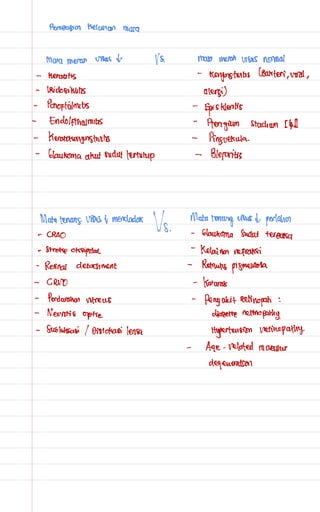 Pendekatan Kelainan mata
mata merah visus ↓ Vs. mata merah visus normal
- Keratitis
- Iridosiklitis
- Panoftalmitis
- Endoftalmitis
- Keratokonjungtivitis
- Glaukoma akut sudut tertutup
- Konjungtivitis (Bakteri, viral, alergi)
- Episkleritis
- Pterygium Stadium I & II
- Pinguekula
- Blefaritis
Mata tenang visus ↓ mendadak Vs. Mata tenang visus ↓ perlahan
- CRAO
- Stroke oksipital
- Retinal detachment
- CRVO
- Perdarahan vitreus
- Neuritis optic
- Subluksasi / Dislokasi lensa
- Glaukoma Sudut terbuka
- Kelainan refraksi
- Retinitis pigmentosa
- Katarak
- Penyakit retinopati :
diabetic retinopathy
Hypertension retinopathy.
- Age - related macular
degeneration